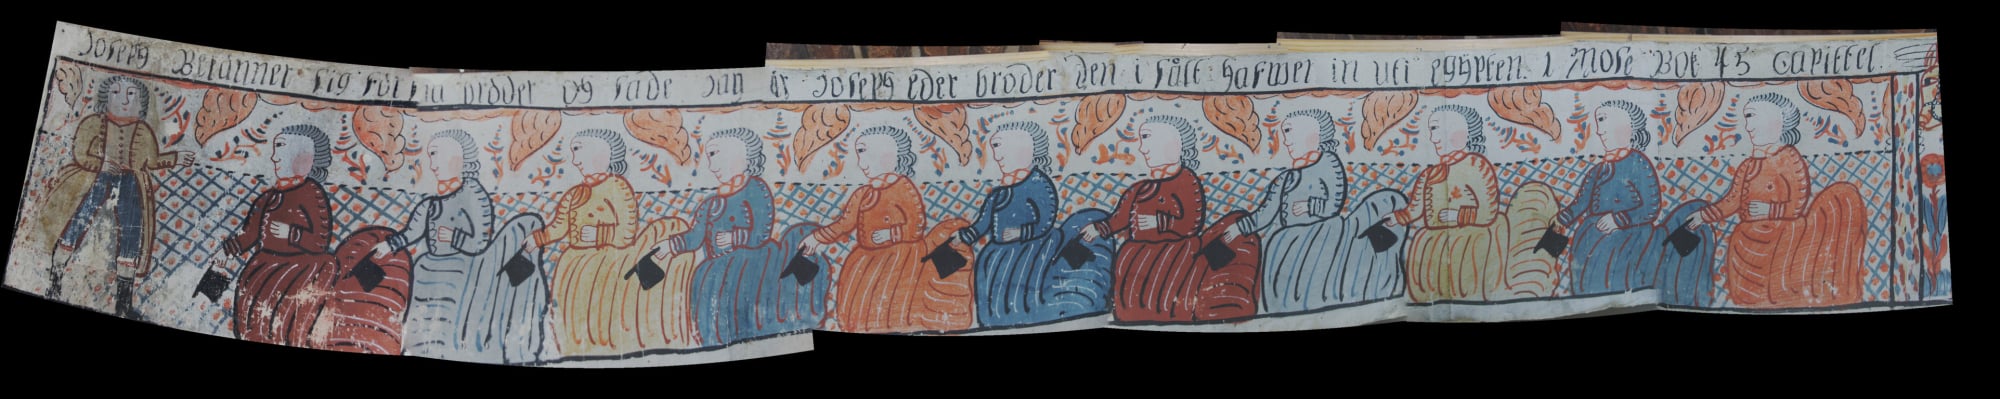 Joseph Bekänner sig för sina bröder og sade Jag är Joseph eder broder den i sålt hafwer in uti egypten. 1 Mose Bok 45 Capittel.